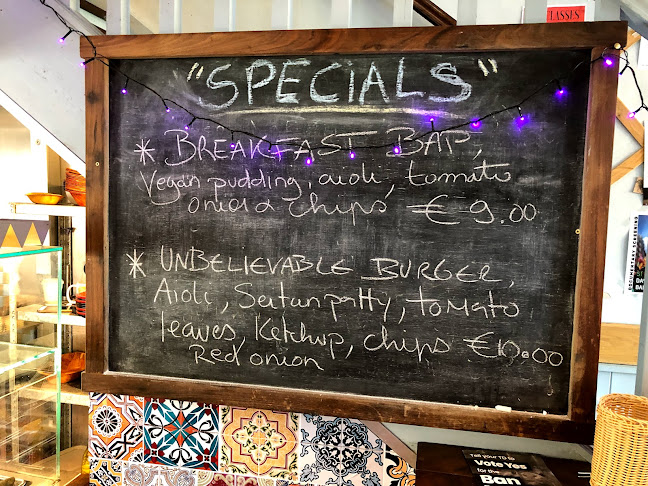 LASSES"
"SPECIALS"
* BREAKFAST BAP,
Vegan pudding, aioli, tomato
onion & chips, € 9.00
* UNBELIEVABLE BURGER,
Aioli, Seitan patty, tomato
leaves, Ketchup, chips €10.00
Red onion
Tell your TD to
Vote Yes
for the
Ban